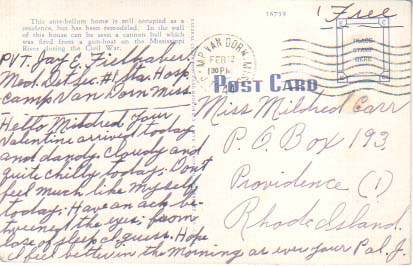 This ante-bellum home is still occupied as a
residence, but has been remodeled. In the wall
of this house can be seen a cannon ball which
was fired from a gun-boat on the Mississippi
River during the Civil War.
16759
Free
PLACE
STAMP
HERE
P VAN DORN, M
FEB 12
130 PM
POST CARD
PVT. Jay E.
Med. Det. Sec. #1, Sta. Hosp.
Camp Van Dorn Miss.
Hello Mildred Your
Valentine arrived today
and dandy. Cloudy and
quite chilly today; Don't
feel much like myself
today; Have an ache be-
tweenest the eyes; from
lose of sleep I guess. Hope
I feel better in the morning as ever your Pal. J.
Miss Mildred Carr
P. O. Box 193.
Providence (1)
Rhode Island.